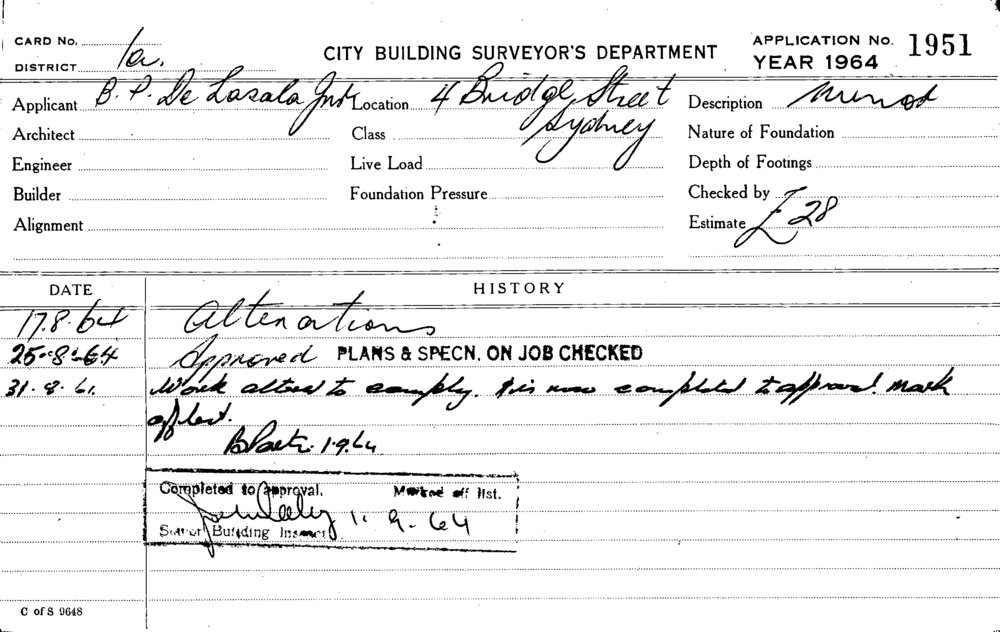 CARD No.
DISTRICT 1a.
CITY BUILDING SURVEYOR'S DEPARTMENT
APPLICATION No. 1951
YEAR 1964
Applicant B. P. De Lasala Location 4 Bridge Street
Sydney
Description Minor
Architect Class Nature of Foundation
Engineer Live Load Depth of Footings
Builder Foundation Pressure Checked by
Alignment Estimate £28
DATE HISTORY
17.8.64 Alterations
25-8-64 Approved PLANS & SPECN. ON JOB CHECKED
31.8.64. Work altered to comply. & is now completed to approval. Mark
off list.
1.9.64
Completed to approval. Marked off list.
1. 9. 64
Senior Building Inspector
C of S 9648